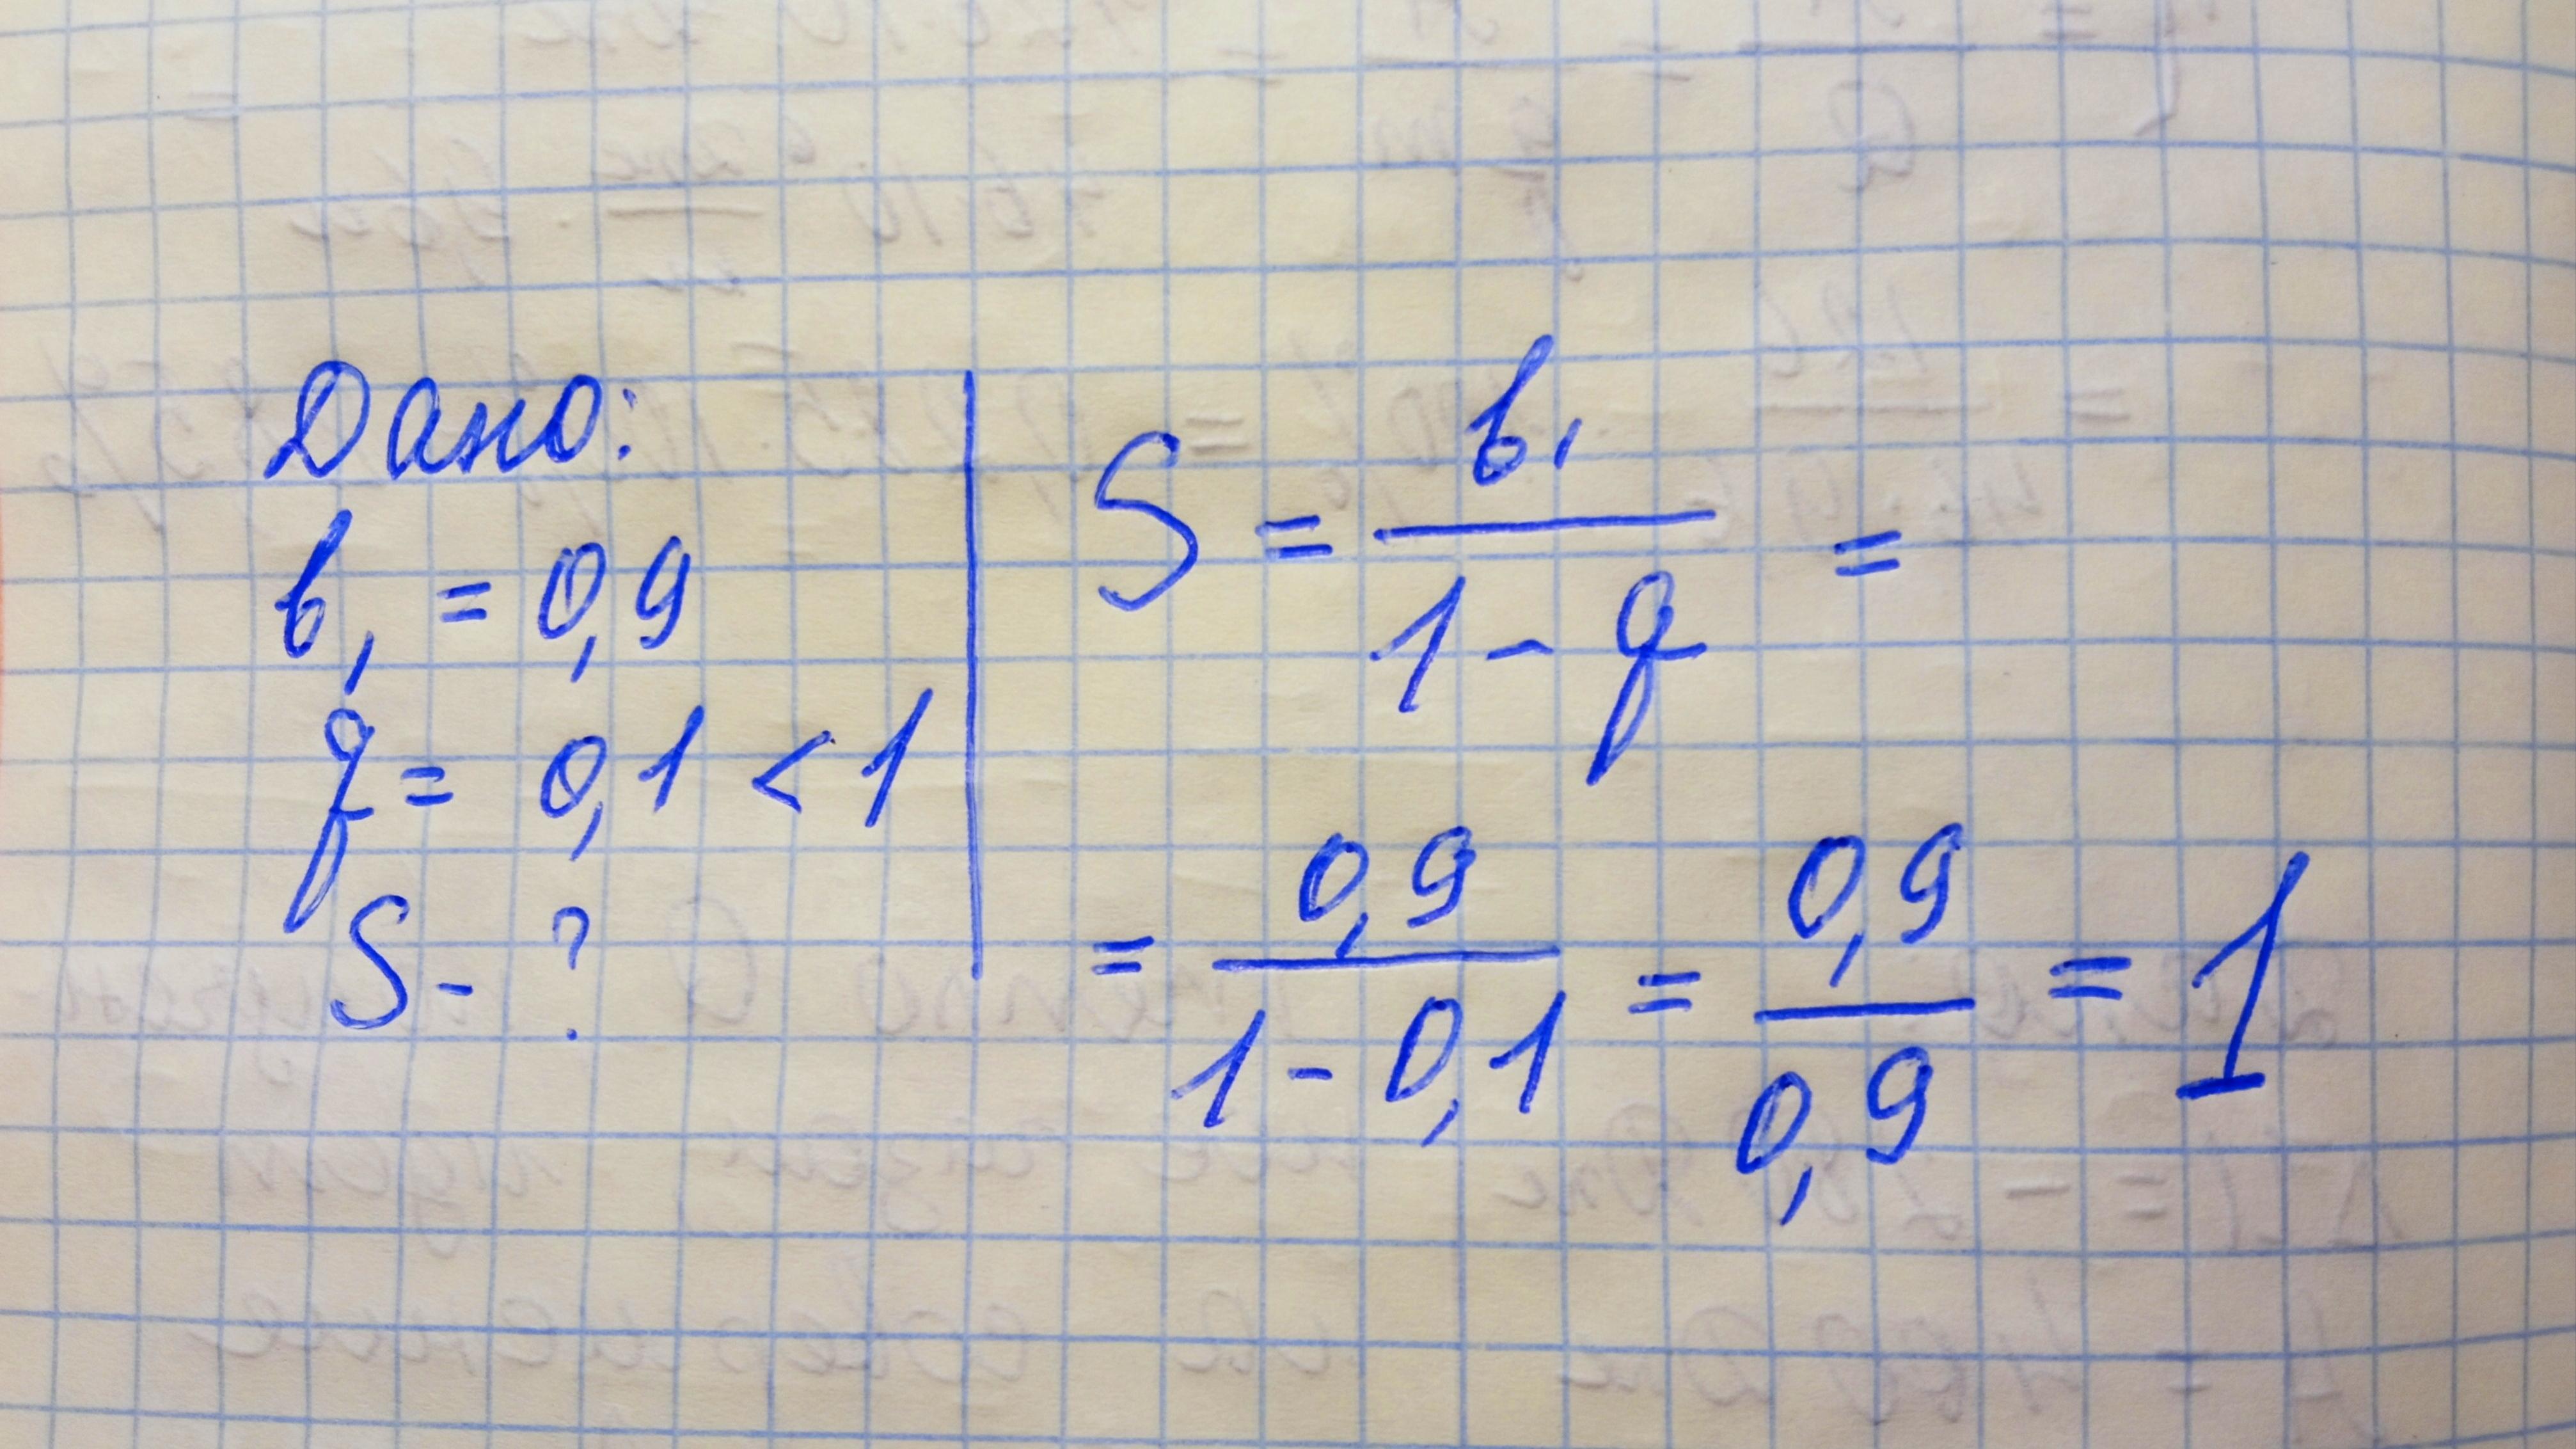 Дано:
b₁ = 0,9
q = 0,1 < 1
S - ?
S = b₁ / (1 - q) =
= 0,9 / (1 - 0,1) = 0,9 / 0,9 = 1